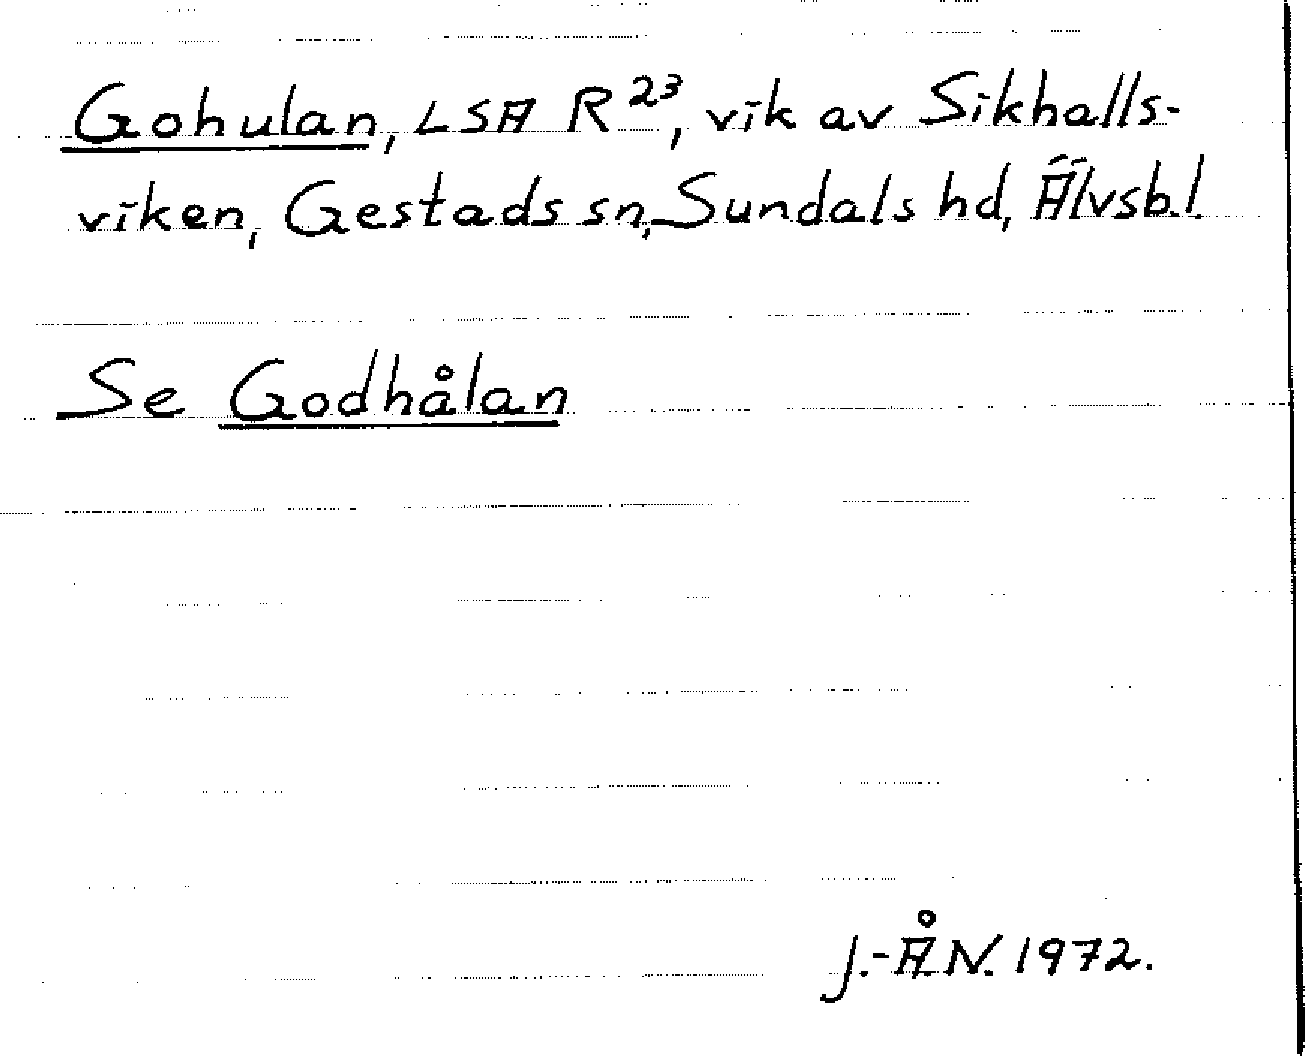 Gohulan, LSA R²³, vik av Sikhalls-
viken, Gestads sn, Sundals hd, Älvsb.l.
Se Godhålan
J.-Å.N. 1972.